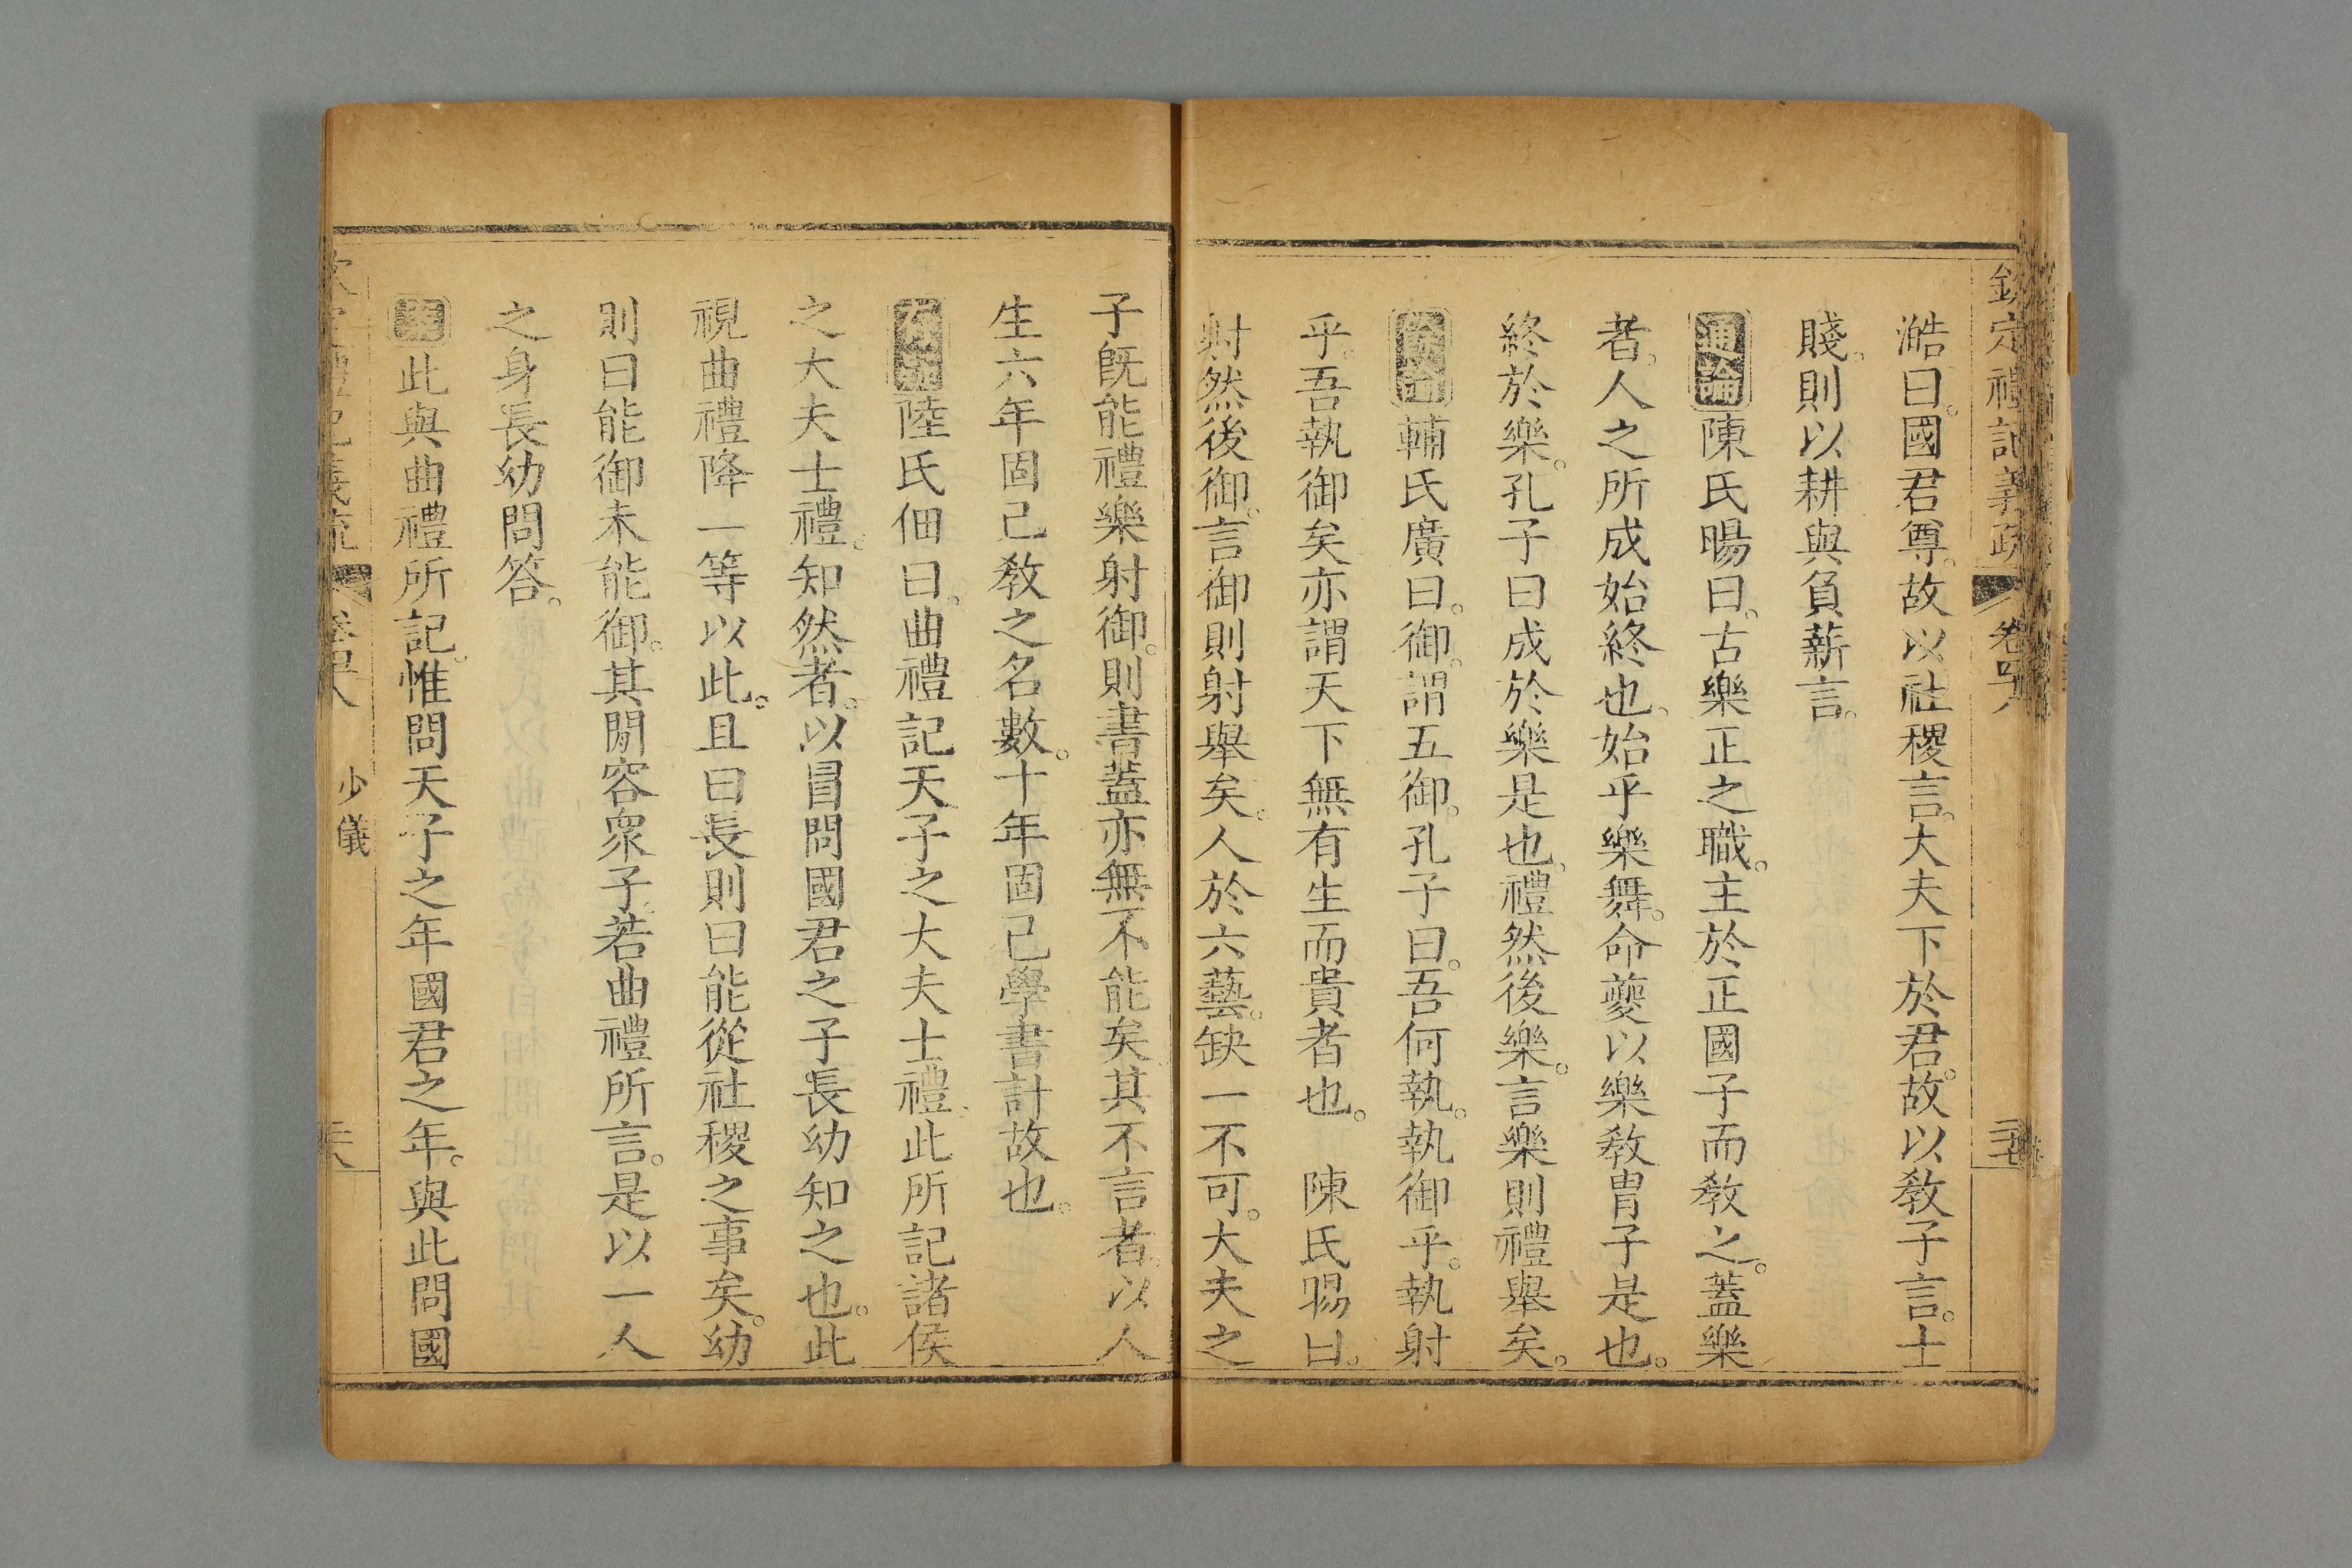 欽定禮記義疏 卷四十八 二十七
澔曰國君尊故以社稷言大夫下於君故以敎子言士
賤則以耕與負薪言
通論陳氏暘曰古樂正之職主於正國子而敎之蓋樂
者人之所成始終也始乎樂舞命夔以樂敎胄子是也
終於樂孔子曰成於樂是也禮然後樂言樂則禮舉矣
輔氏廣曰御謂五御孔子曰吾何執執御乎執射
乎吾執御矣亦謂天下無有生而貴者也 陳氏暘曰
射然後御言御則射舉矣人於六藝缺一不可大夫之
子旣能禮樂射御則書蓋亦無不能矣其不言者以人
生六年固已敎之名數十年固已學書計故也
陸氏佃曰曲禮記天子之大夫士禮此所記諸侯
之大夫士禮知然者以冒問國君之子長幼知之也此
視曲禮降一等以此且曰長則曰能從社稷之事矣幼
則曰能御未能御其閒容衆子若曲禮所言是以一人
之身長幼問答
此與曲禮所記惟問天子之年國君之年與此問國
欽定禮記義疏 卷四十八 少儀 二十八